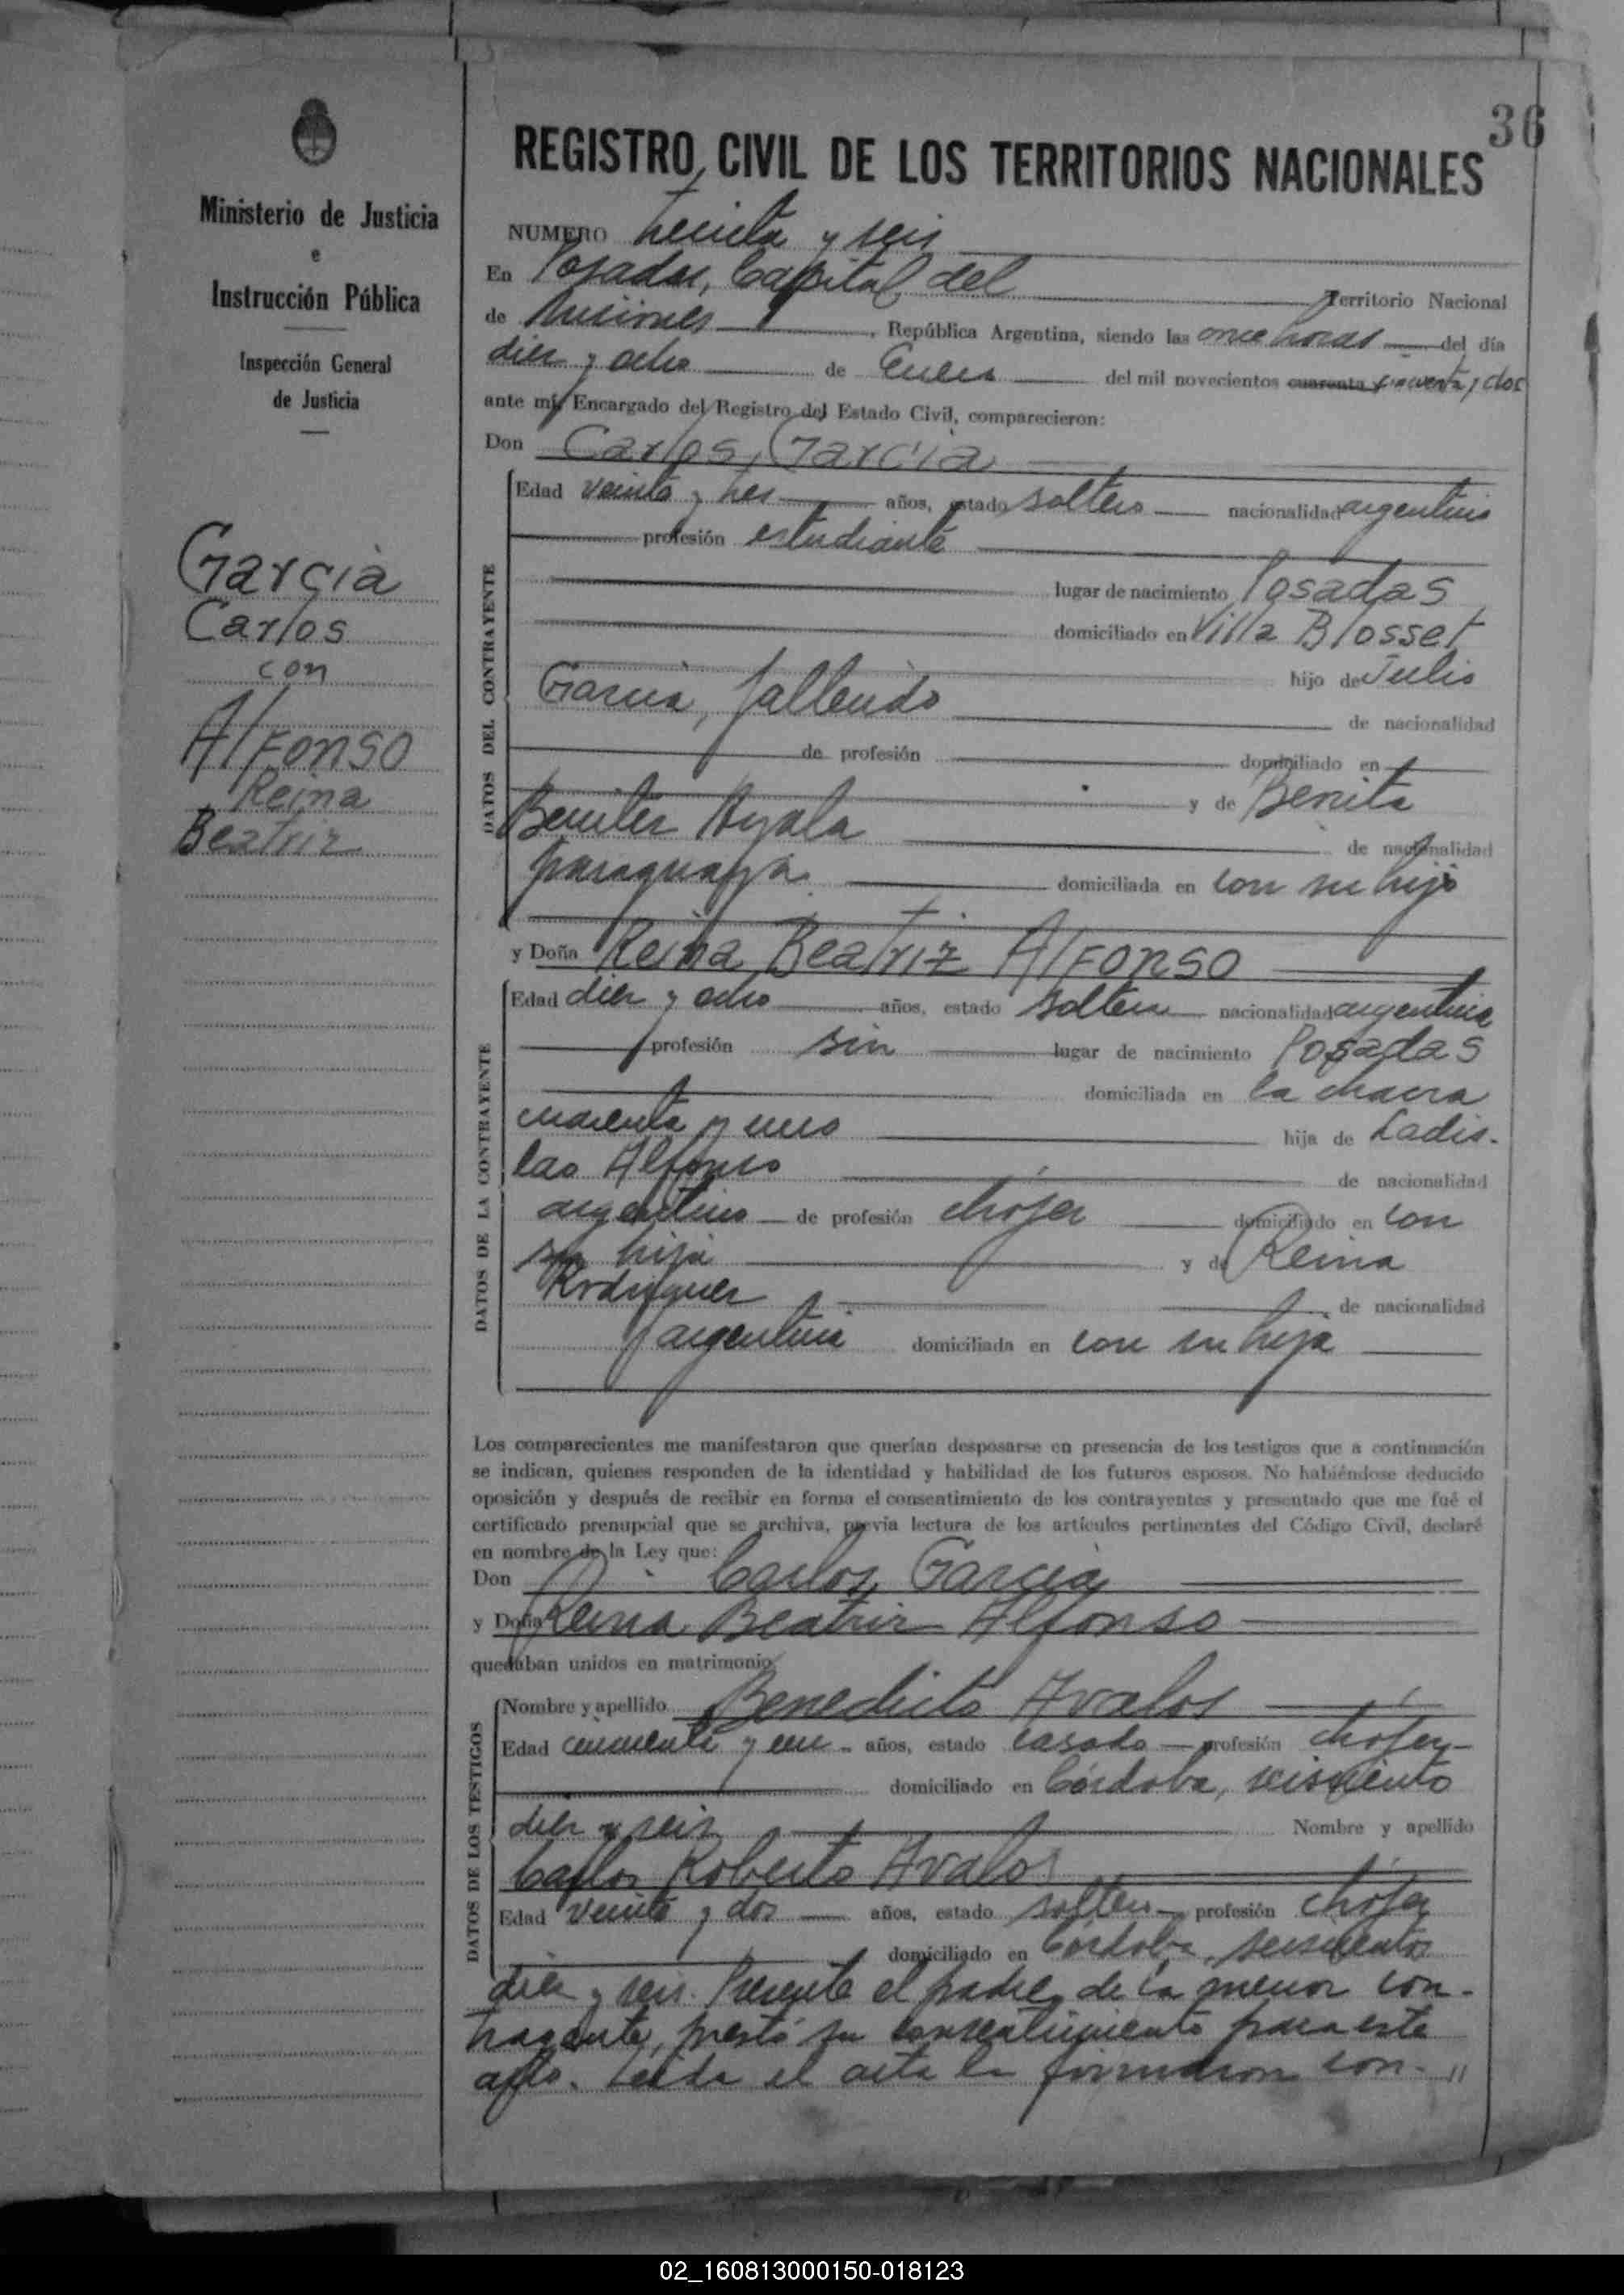 36
Ministerio de Justicia
e
Instrucción Pública
Inspección General
de Justicia
García
Carlos
con
Alfonso
Reina
Beatriz
REGISTRO CIVIL DE LOS TERRITORIOS NACIONALES
NUMERO treinta y seis
En Posadas, Capital del Territorio Nacional
de Misiones, República Argentina, siendo las once horas del día
diez y ocho de Enero del mil novecientos cuarenta cincuenta y dos
ante mí, Encargado del Registro del Estado Civil, comparecieron:
Don Carlos García
DATOS DEL CONTRAYENTE
Edad veinte y tres años, estado soltero nacionalidad argentino
profesión estudiante
lugar de nacimiento Posadas
domiciliado en Villa Blosset
hijo de Julio
García, fallecido de nacionalidad
de profesión domiciliado en
y de Benita
Benitez Ayala de nacionalidad
paraguaya domiciliada en con su hijo
y Doña Reina Beatriz Alfonso
DATOS DE LA CONTRAYENTE
Edad diez y ocho años, estado soltera nacionalidad argentina
profesión sin lugar de nacimiento Posadas
domiciliada en la chacra
cuarenta y uno hija de Ladis-
lao Alfonso de nacionalidad
argentino de profesión chófer domiciliado en con
su hija y de Reina
Rodriguez de nacionalidad
argentina domiciliada en con su hija
Los comparecientes me manifestaron que querían desposarse en presencia de los testigos que a continuación
se indican, quienes responden de la identidad y habilidad de los futuros esposos. No habiéndose deducido
oposición y después de recibir en forma el consentimiento de los contrayentes y presentado que me fué el
certificado prenupcial que se archiva, previa lectura de los artículos pertinentes del Código Civil, declaré
en nombre de la Ley que:
Don Carlos García
y Doña Reina Beatriz Alfonso
quedaban unidos en matrimonio.
DATOS DE LOS TESTIGOS
Nombre y apellido Benedicto Avalos
Edad cincuenta y un años, estado casado profesión chófer
domiciliado en Córdoba, seiscientos
diez y seis Nombre y apellido
Carlos Roberto Avalos
Edad veinte y dos años, estado soltero profesión chófer
domiciliado en Córdoba, seiscientos
diez y seis. Presente el padre de la menor con-
trayente, prestó su consentimiento para este
acto. Leída el acta la firmaron con-"
02_160813000150-018123